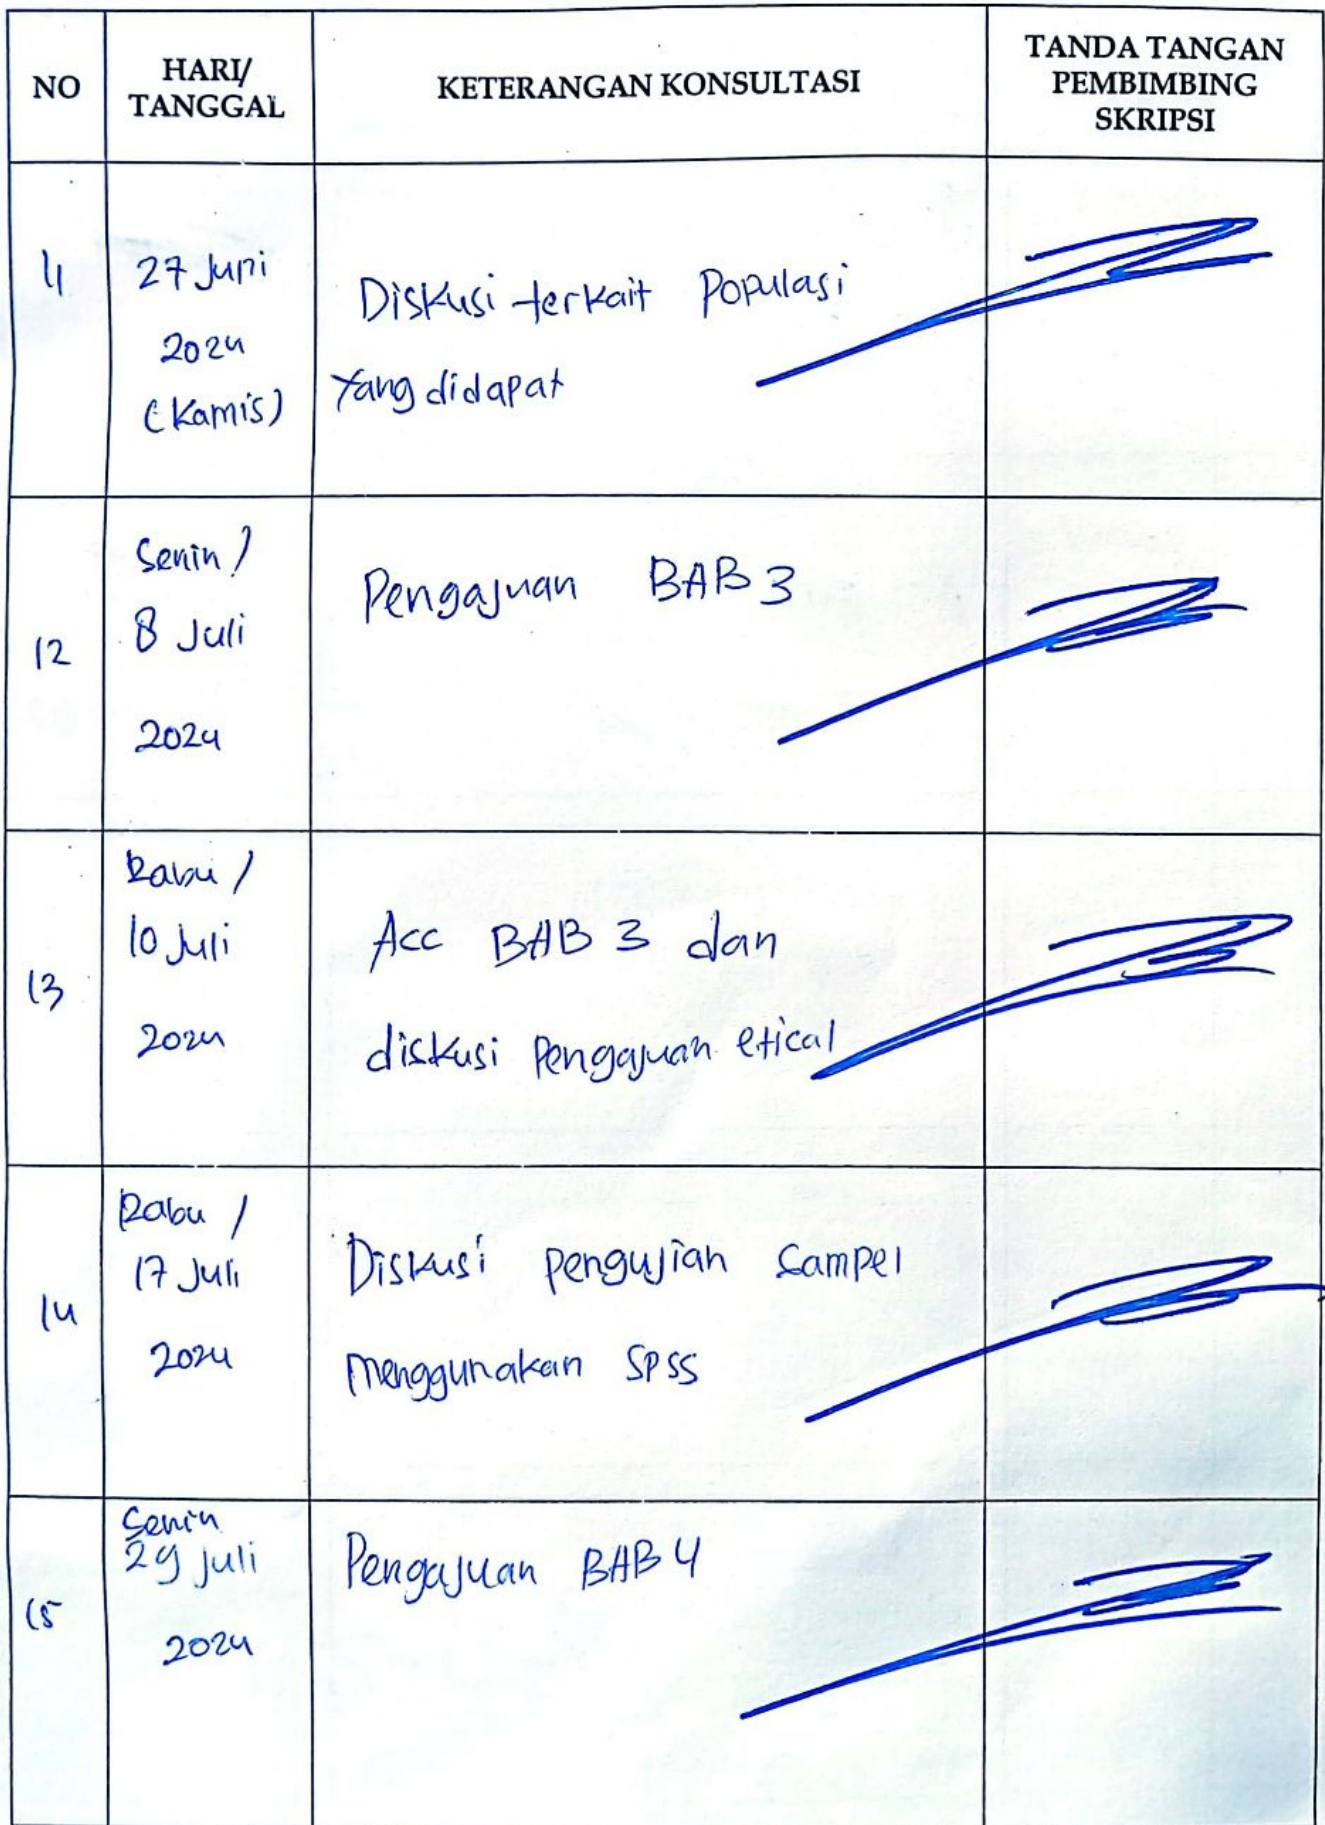 NO
HARI/
TANGGAL
KETERANGAN KONSULTASI
TANDA TANGAN
PEMBIMBING
SKRIPSI
11
27 Juni
2024
(Kamis)
Diskusi terkait Populasi
Yang didapat
12
Senin /
8 Juli
2024
Pengajuan BAB 3
13
Rabu /
10 Juli
2024
Acc BAB 3 dan
diskusi Pengajuan etical
14
Rabu /
17 Juli
2024
Diskusi pengujian Sampel
menggunakan SPSS
15
Senin
29 Juli
2024
Pengajuan BAB 4